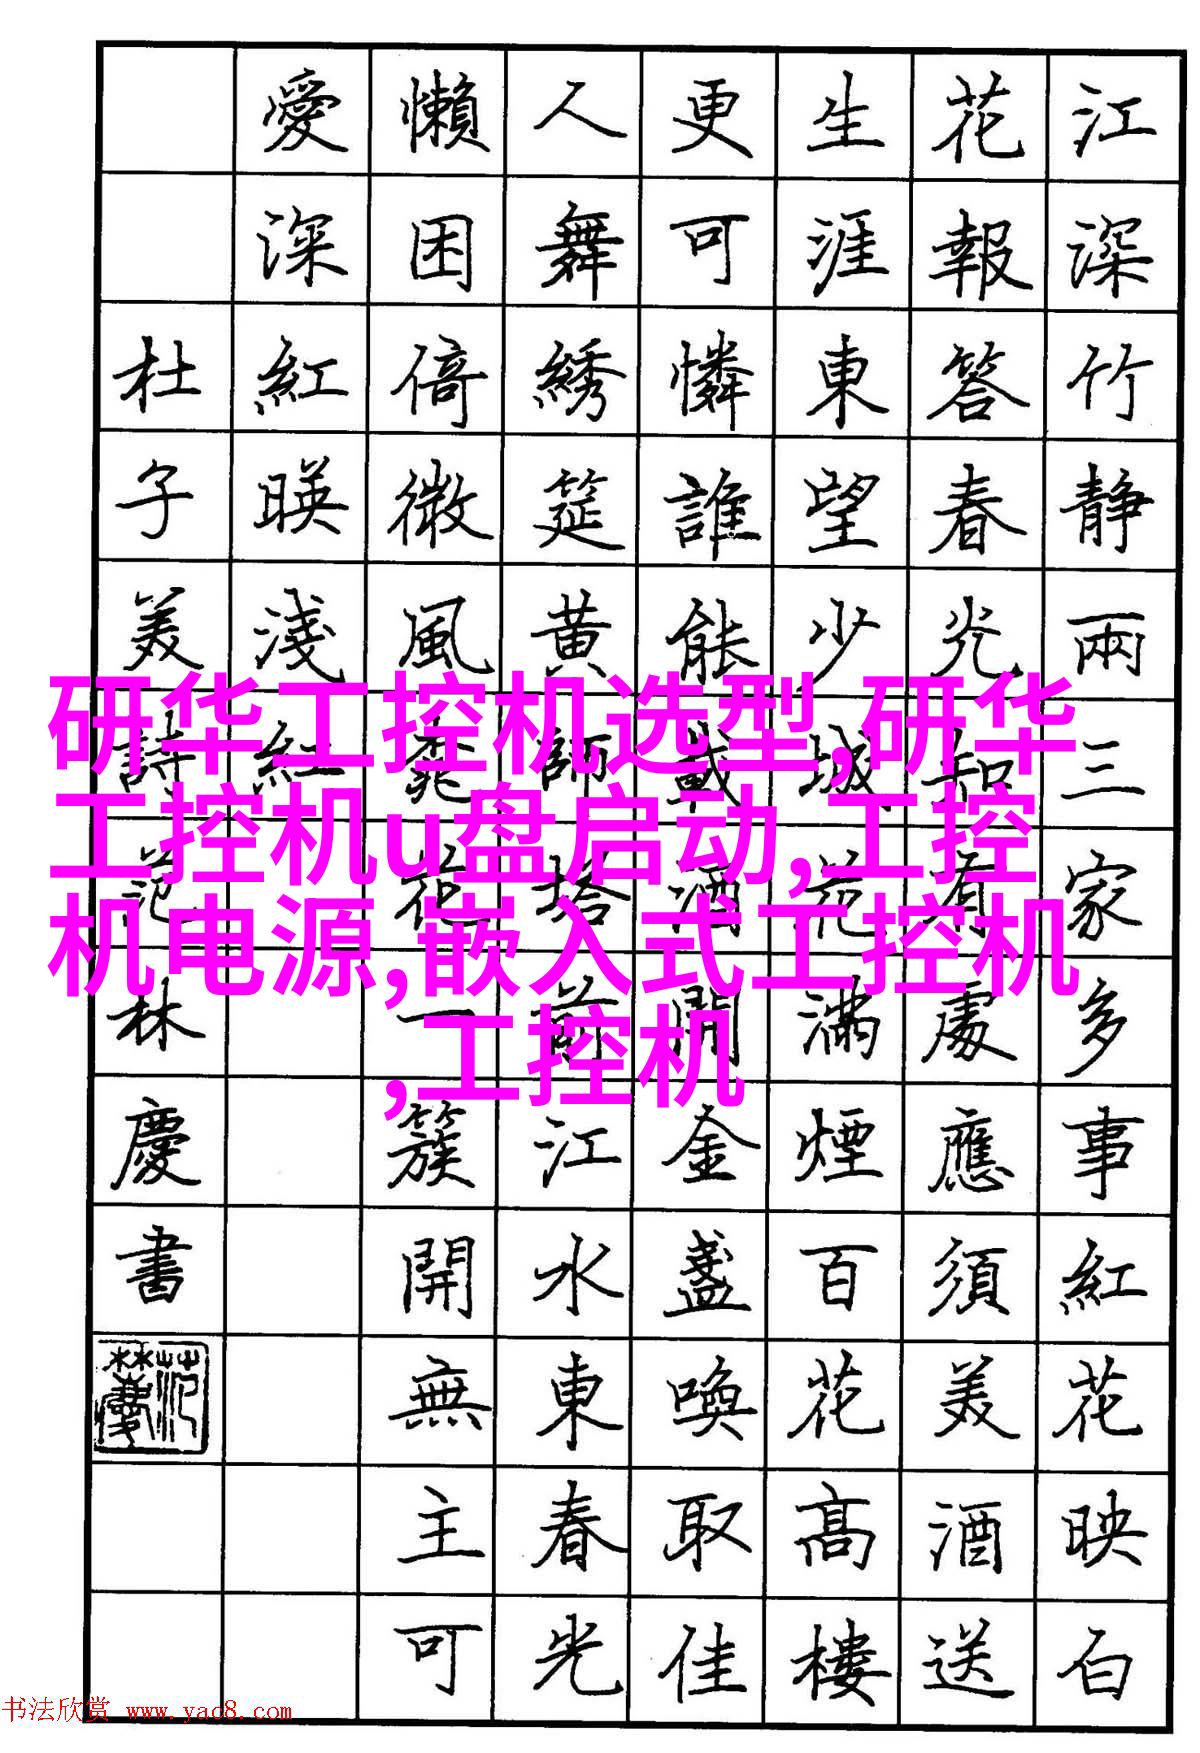 江深竹静兩三家多事紅花映白
花報答春光知有處應須美酒送
生涯東望少城花滿煙百花高樓
更可憐誰能載酒開金盞喚取佳
人舞綉筵黄師塔前江水東春光
懶困倚微風桃花一簇開無主可
愛深紅暎淺紅
杜子美詩范林慶書
范林慶
研华工控机选型,研华
工控机u盘启动,工控
机电源,嵌入式工控机
,工控机
书法欣赏 www.yac8.com